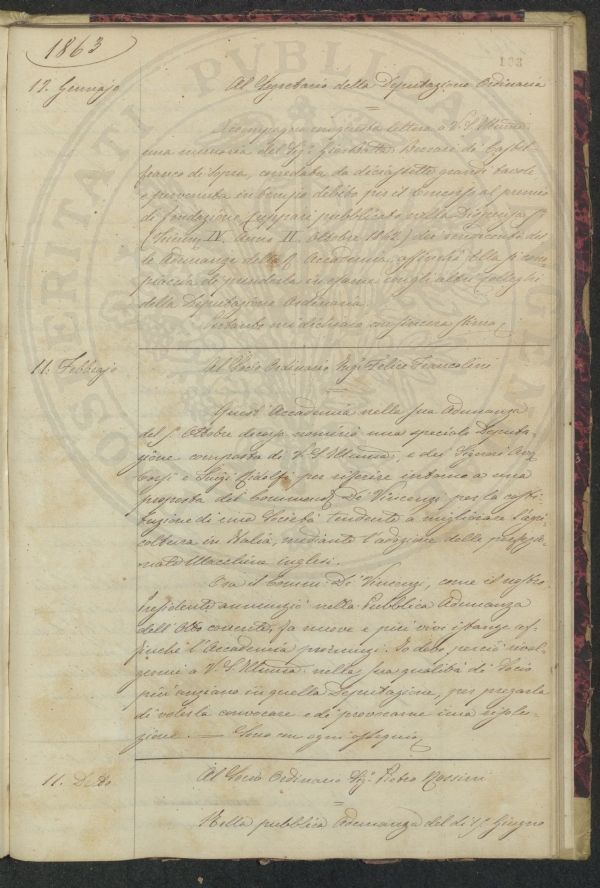 1863
103
12. Gennajo
Al Segretario della Deputazione Ordinaria
Accompagno con questa lettera a V. S. Illma
una memoria del Sig.
franco di Sopra, corredata da diciassette grandi tavole
e pervenuta in tempo debito per il Concorso al premio
di fondazione Cuppari pubblicato nella Dispensa
IV Anno II Ottobre 1862) dei rendiconti del
le Adunanze della R. Accademia, affinchè Ella si com
piaccia di prenderla in esame cogli altri Colleghi
della Deputazione Ordinaria.
Pertanto mi dichiaro con sincera stima
11. Febbrajo
Al Socio Ordinario Sig. Felice Francolini
Quest' Accademia nella sua Adunanza
del 5. Ottobre decorso nominò una speciale Deputa-
zione composta di V. S. Illma, e dei Signori Ang.
e Luigi Ridolfi per riferire intorno a una
proposta del Commend. De Vincenzi per la costi-
tuzione di una Società tendente a migliorare l'agri
coltura in Italia, mediante l'adozione delle perfezio-
nate Macchine inglesi.
Ora il Comm. De' Vincenzi, come il nostro
Presidente annunziò nella Pubblica Adunanza
dell' Otto corrente, fa nuove e più vive istanze af-
finchè l'Accademia pronunzi. Io debbo perciò rivol-
germi a V. S. Illma nella sua qualità di Socio
più anziano in quella Deputazione, per pregarla
di volerla convocare e di provocarne una risolu-
zione. — Sono con ogni ossequio
11. Detto
Al Socio Ordinario Sig. Pietro Rossini
Nella pubblica Adunanza del dì 1.° Giugno